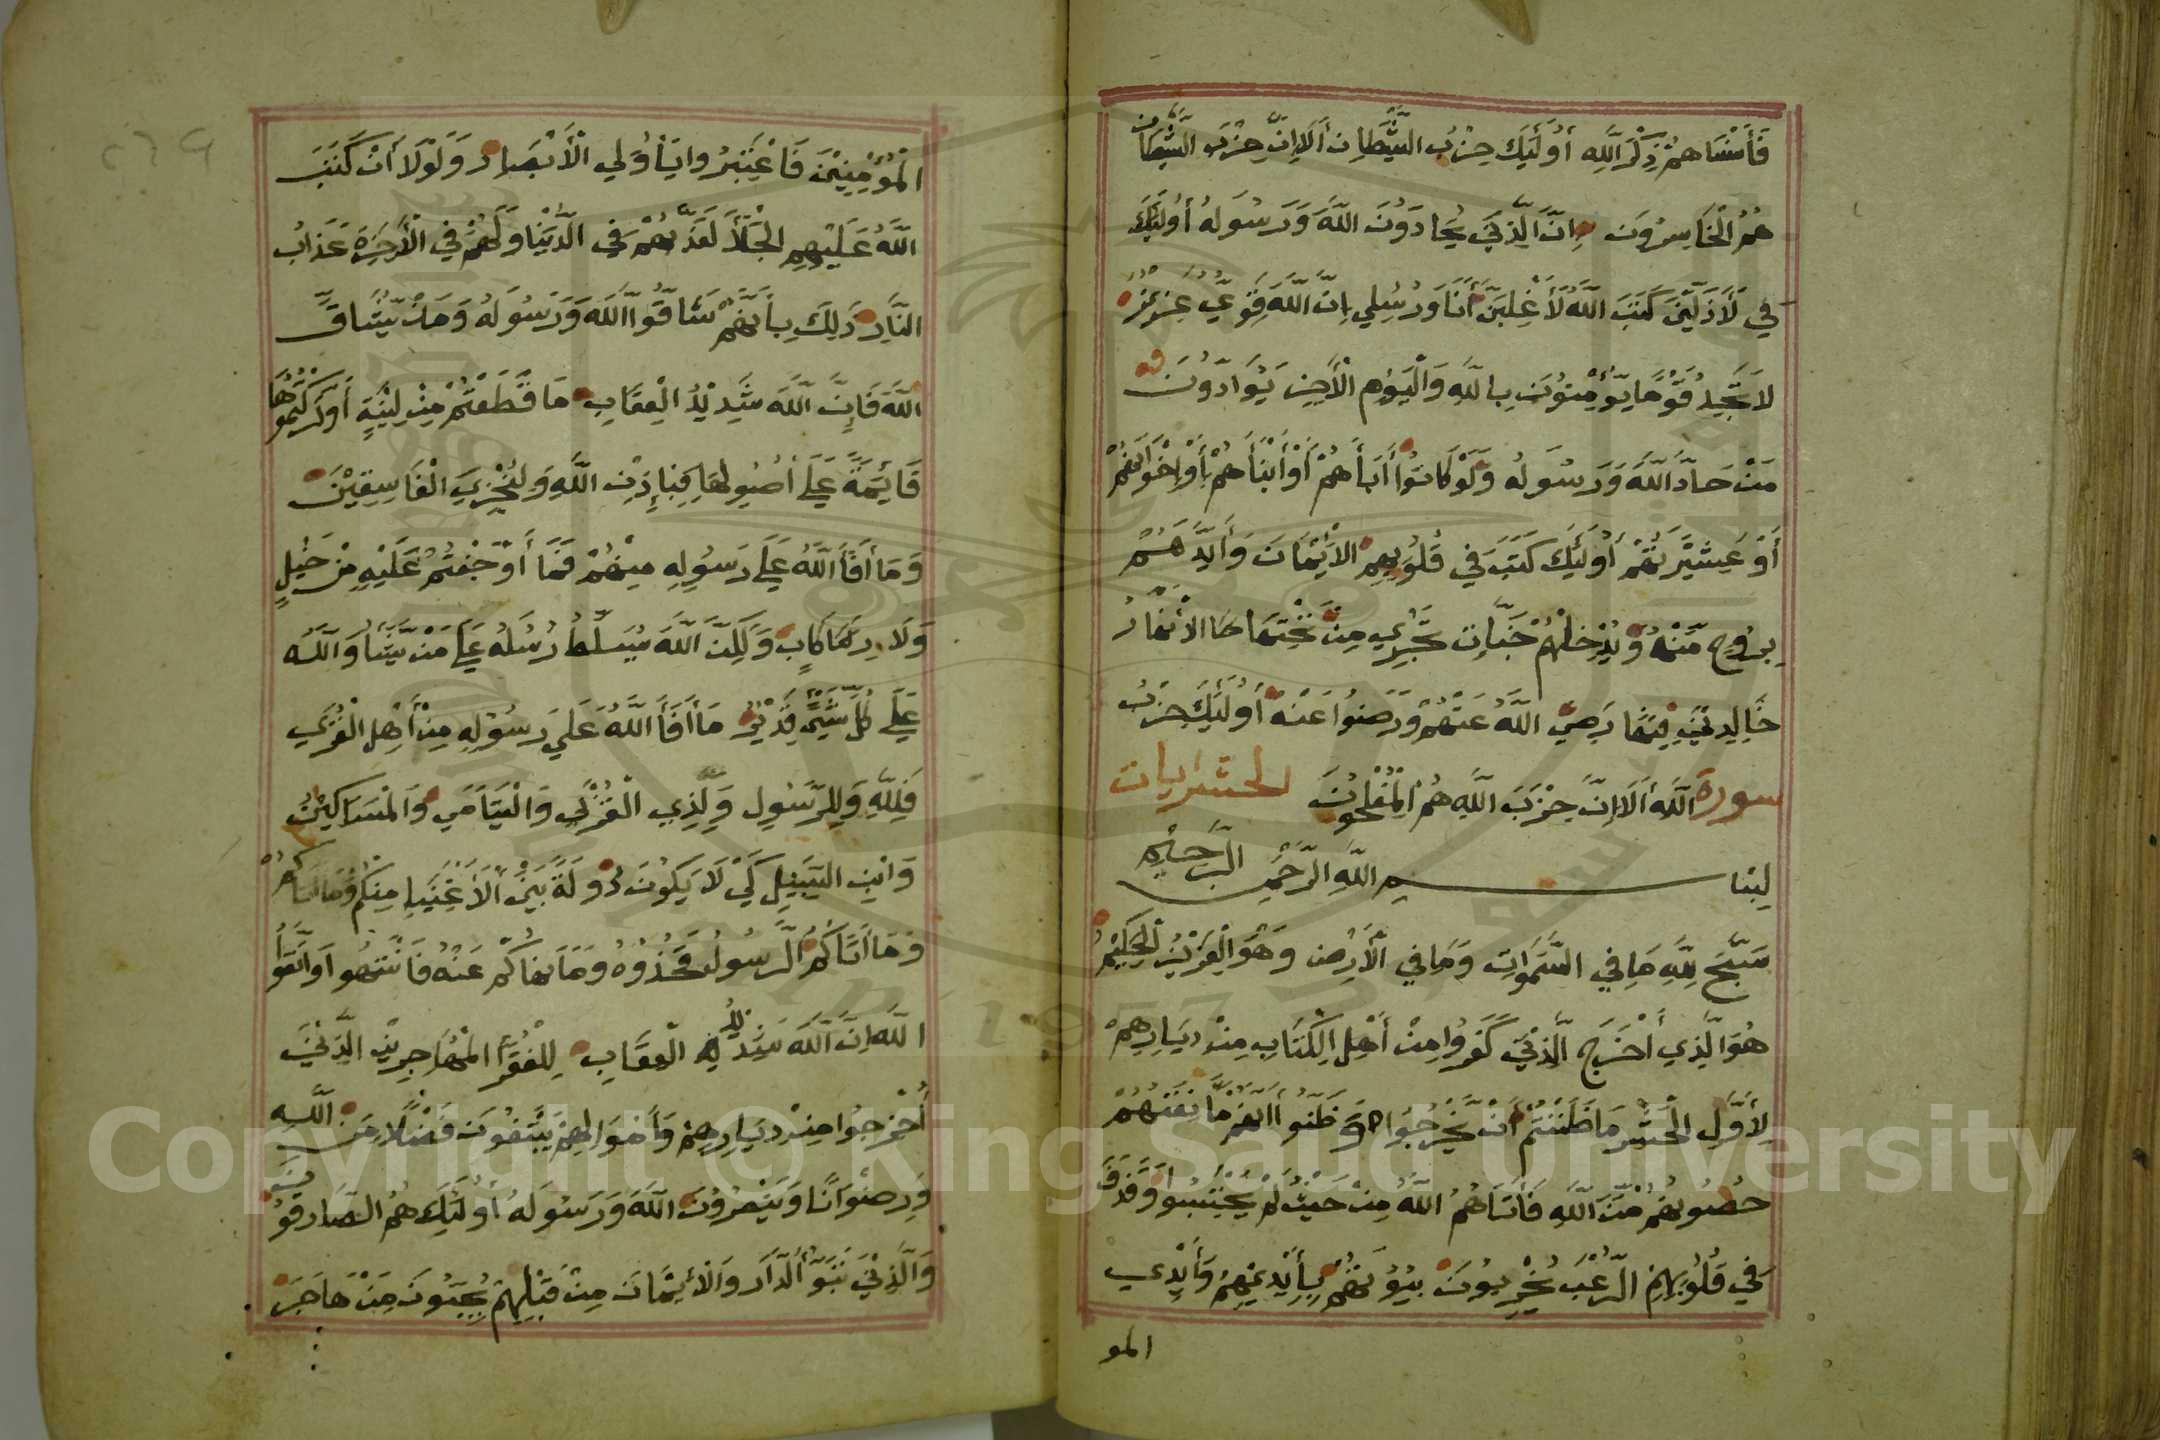 فَأَنْسَاهُمْ ذِكْرَ اللَّهِ أُولَئِكَ حِزْبُ الشَّيْطَانِ أَلَا إِنَّ حِزْبَ الشَّيْطَانِ
هُمُ الْخَاسِرُونَ إِنَّ الَّذِينَ يُحَادُونَ اللَّهَ وَرَسُولَهُ أُولَئِكَ
فِي لَأَذَلِّينَ كَتَبَ اللَّهُ لَأَغْلِبَنَّ أَنَا وَرُسُلِي إِنَّ اللَّهَ قَوِيٌّ عَزِيزٌ
لَا تَجِدُ قَوْمًا يُؤْمِنُونَ بِاللَّهِ وَالْيَوْمِ الْأَخِرِ يُوَادُّونَ
مَنْ حَادَّ اللَّهَ وَرَسُولَهُ وَلَوْ كَانُوا أَبَأَهُمْ أَوْ أَبْنَأَهُمْ أَوْ إِخْوَانَهُمْ
أَوْ عَشِيرَتَهُمْ أُولَئِكَ كَتَبَ فِي قُلُوبِهِمُ الْإِيْمَانَ وَأَيَّدَهُمْ
بِرُوحٍ مِنْهُ وَيُدْخِلُهُمْ جَنَّاتٍ تَجْرِي مِنْ تَحْتِهَا الْأَنْهَارُ
خَالِدِينَ فِيهَا رَضِيَ اللَّهُ عَنْهُمْ وَرَضُوا عَنْهُ أُولَئِكَ حِزْبُ
اللَّهِ أَلَا إِنَّ حِزْبَ اللَّهِ هُمُ الْمُفْلِحُونَ
سورة الحشر ايات
بسم اللَّهِ الرَّحْمَنِ الرَّحِيمِ
سَبَّحَ لِلَّهِ مَا فِي السَّمَوَاتِ وَمَا فِي الْأَرْضِ وَهُوَ الْعَزِيزُ الْحَكِيمُ
هُوَ الَّذِي أَخْرَجَ الَّذِينَ كَفَرُوا مِنْ أَهْلِ الْكِتَابِ مِنْ دِيَارِهِمْ
لِأَوَّلِ الْحَشْرِ مَا ظَنَنْتُمْ أَنْ يَخْرُجُوا وَظَنُّوا أَنَّهُمْ مَانِعَتُهُمْ
حُصُونُهُمْ مِنَ اللَّهِ فَأَتَاهُمُ اللَّهُ مِنْ حَيْثُ لَمْ يَحْتَسِبُوا وَقَذَفَ
فِي قُلُوبِهِمُ الرُّعْبَ يُخْرِبُونَ بُيُوتَهُمْ بِأَيْدِيهِمْ وَأَيْدِي
المو
الْمُؤْمِنِينَ فَاعْتَبِرُوا يَأُولِي الْأَبْصَارِ وَلَوْلَا أَنْ كَتَبَ
اللَّهُ عَلَيْهِمُ الْجَلَأَ لَعَذَّبَهُمْ فِي الدُّنْيَا وَلَهُمْ فِي الْأَخِرَةِ عَذَابُ
النَّارِ ذَلِكَ بِأَنَّهُمْ شَاقُّوا اللَّهَ وَرَسُولَهُ وَمَنْ يُشَاقِّ
اللَّهَ فَإِنَّ اللَّهَ شَدِيدُ الْعِقَابِ مَا قَطَعْتُمْ مِنْ لِينَةٍ أَوْ تَرَكْتُمُوهَا
قَايِمَةً عَلَى أُصُولِهَا فَبِإِذْنِ اللَّهِ وَلِيُخْزِيَ الْفَاسِقِينَ
وَمَا أَفَأَ اللَّهُ عَلَى رَسُولِهِ مِنْهُمْ فَمَا أَوْجَفْتُمْ عَلَيْهِ مِنْ خَيْلٍ
وَلَا رِكَابٍ وَلَكِنَّ اللَّهَ يُسَلِّطُ رُسُلَهُ عَلَى مَنْ يَشَأُ وَاللَّهُ
عَلَى كُلِّ شَيْءٍ قَدِيرٌ مَا أَفَأَ اللَّهُ عَلَى رَسُولِهِ مِنْ أَهْلِ الْقُرَى
فَلِلَّهِ وَلِلرَّسُولِ وَلِذِي الْقُرْبَى وَالْيَتَامَى وَالْمَسَاكِينِ
وَابْنِ السَّبِيلِ كَيْ لَا يَكُونَ دُولَةً بَيْنَ الْأَغْنِيَا مِنْكُمْ
وَمَا أَتَاكُمُ الرَّسُولُ فَخُذُوهُ وَمَا نَهَاكُمْ عَنْهُ فَانْتَهُوا وَاتَّقُوا
اللَّهَ إِنَّ اللَّهَ شَدِيدُ الْعِقَابِ لِلْفُقَرَأِ الْمُهَاجِرِينَ الَّذِينَ
أُخْرِجُوا مِنْ دِيَارِهِمْ وَأَمْوَالِهِمْ يَبْتَغُونَ فَضْلًا مِنَ اللَّهِ
وَرِضْوَانًا وَيَنْصُرُونَ اللَّهَ وَرَسُولَهُ أُولَئِكَ هُمُ الصَّادِقُونَ
وَالَّذِينَ تَبَوَّأُ الدَّارَ وَالْإِيْمَانَ مِنْ قَبْلِهِمْ يُحِبُّونَ مَنْ هَاجَرَ
Copyright © King Saud University